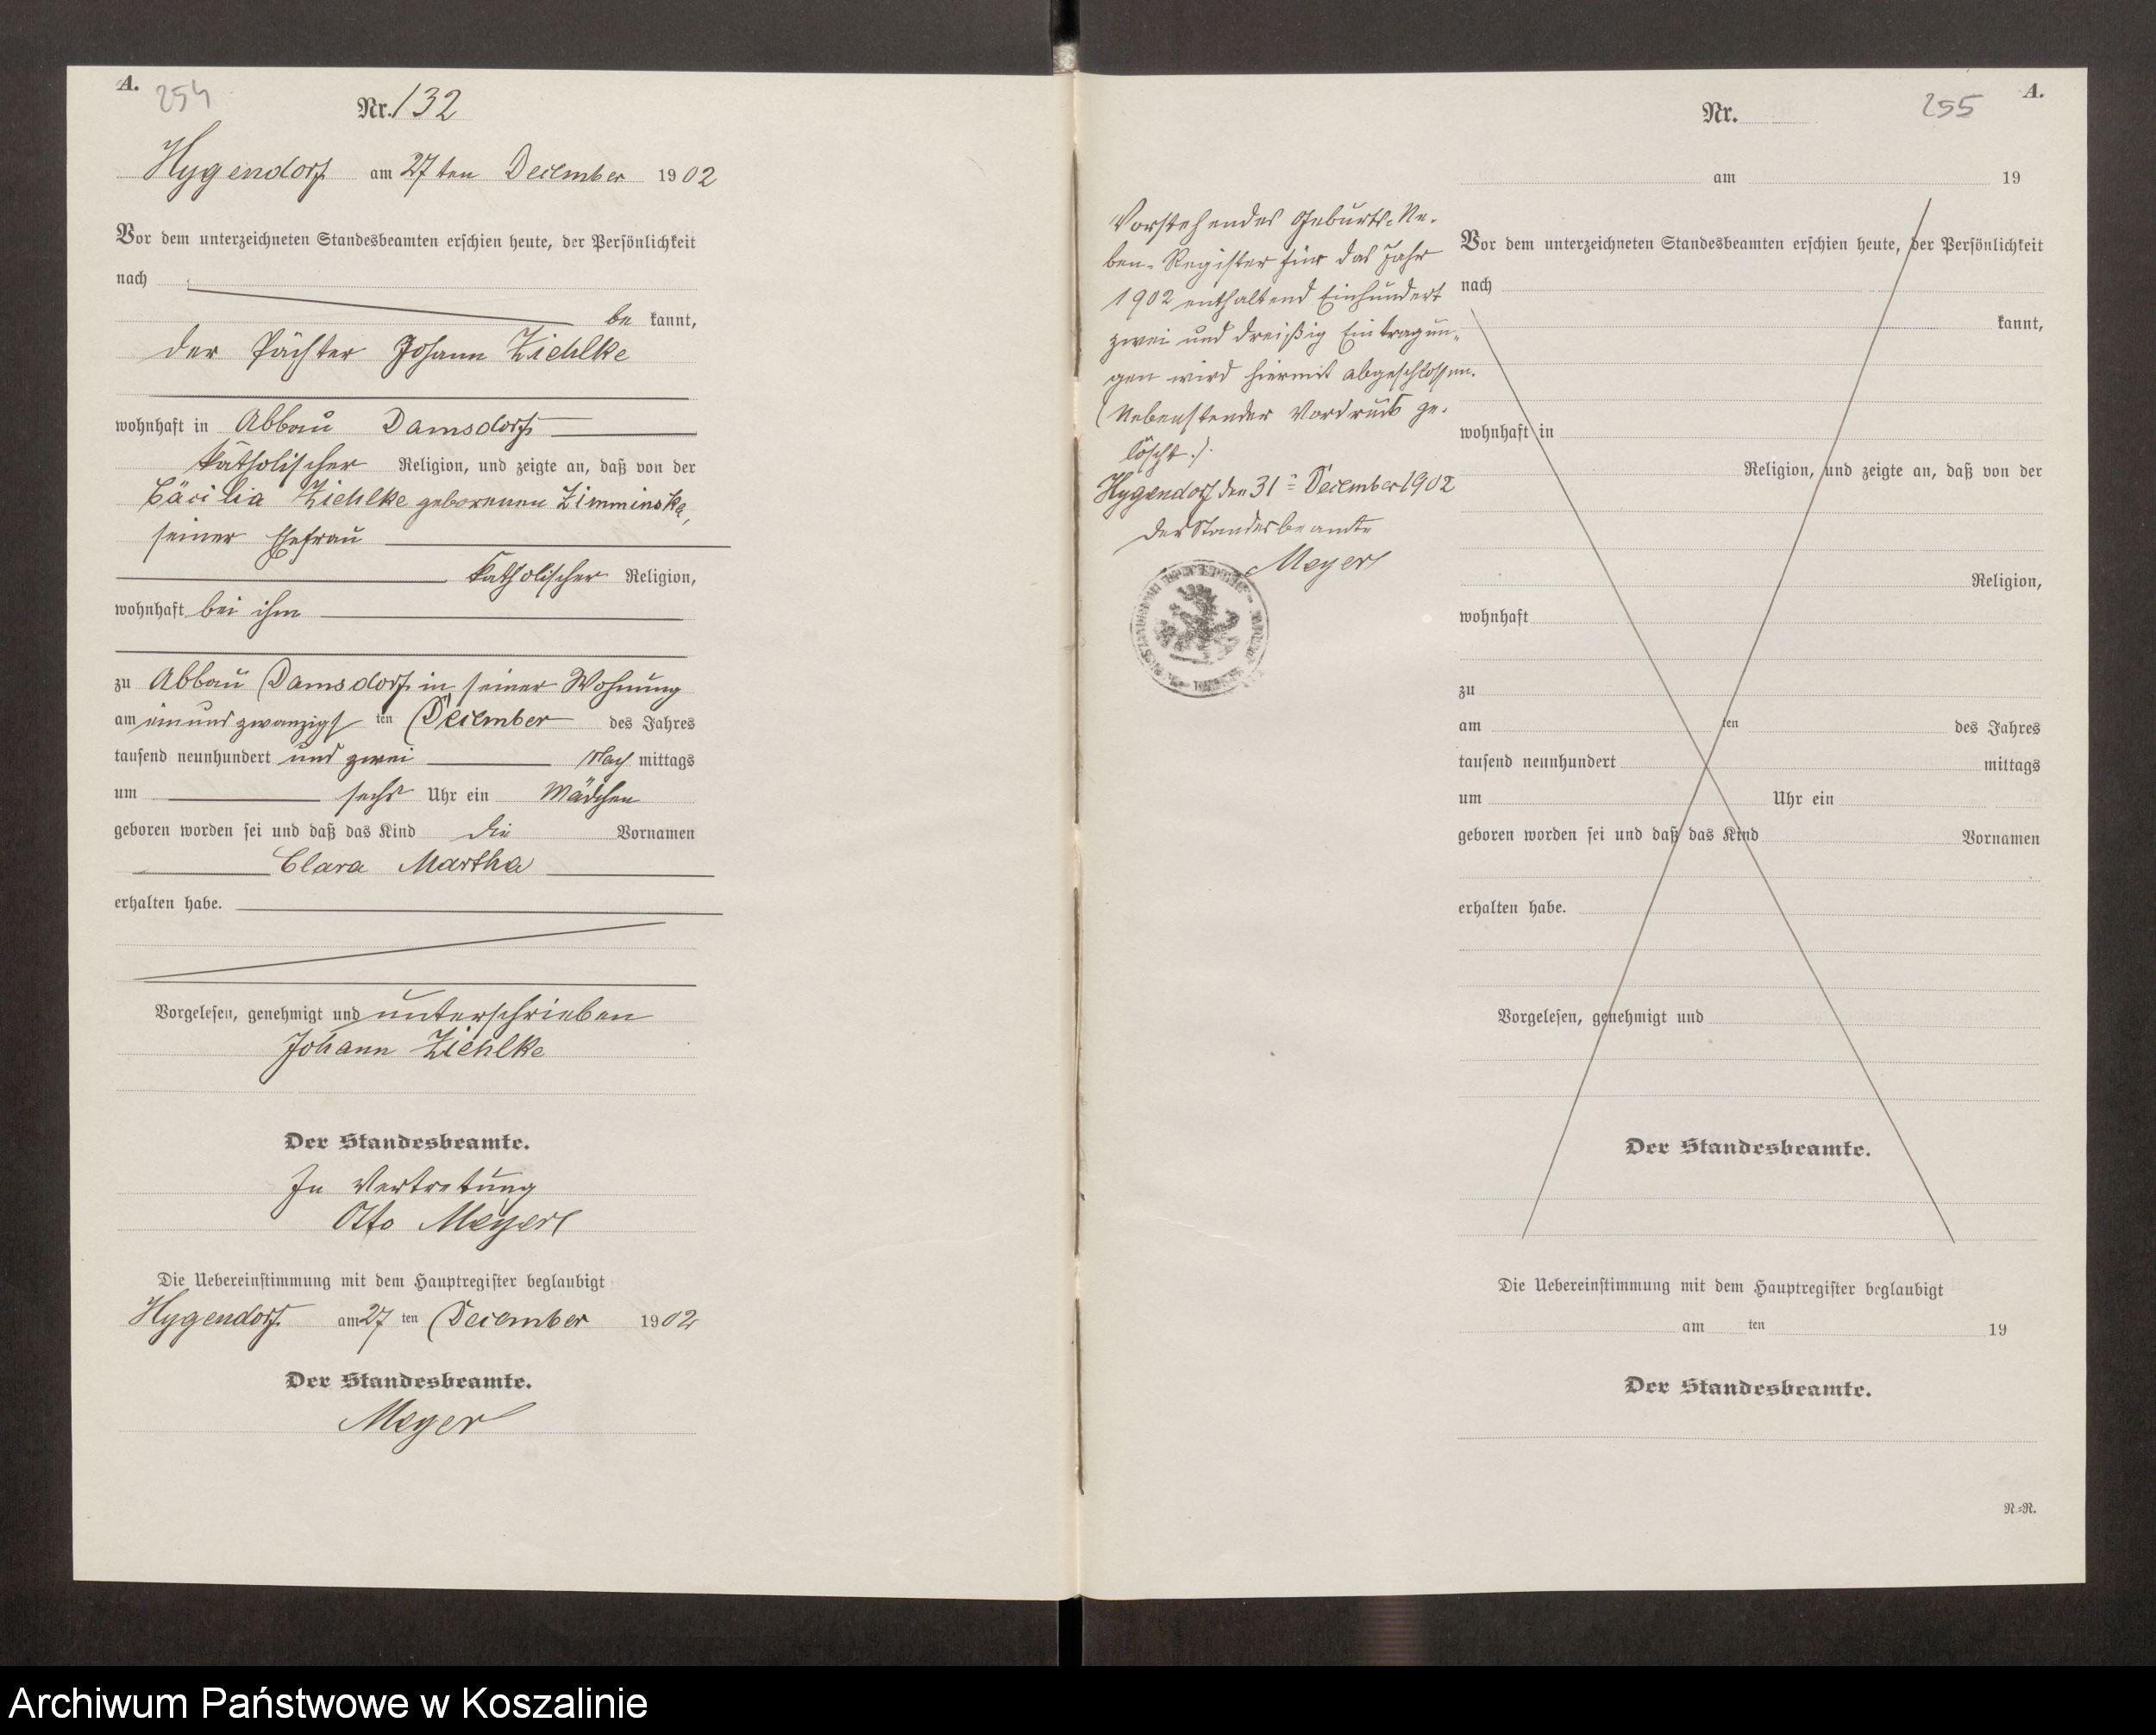 A.
254
Nr. 132
Hygendorf am 27ten December 1902
Vor dem unterzeichneten Standesbeamten erschien heute, der Persönlichkeit
nach
be kannt,
der Pächter Johann Ziehlke
wohnhaft in Abbau Damsdorf
katholischer Religion, und zeigte an, daß von der
Cäcilia Ziehlke geborenen Zimminska,
seiner Ehefrau
katholischer Religion,
wohnhaft bei ihm
zu Abbau Damsdorf in seiner Wohnung
am einund zwanzigs ten December des Jahres
tausend neunhundert und zwei Nach mittags
um sechs Uhr ein Mädchen
geboren worden sei und daß das Kind die Vornamen
Clara Martha
erhalten habe.
Vorgelesen, genehmigt und unterschrieben
Johann Ziehlke
Der Standesbeamte.
In Vertretung
Otto Meyer
Die Uebereinstimmung mit dem Hauptregister beglaubigt
Hygendorf am 27 ten December 1902
Der Standesbeamte.
Meyer
Vorstehendes Geburts-Ne-
ben-Register für das Jahr
1902 enthaltend Einhundert
zwei und dreißig Eintragun-
gen wird hiermit abgeschlossen.
(Nebenstender Vordruck ge-
löscht.)
Hygendorf den 31 December 1902
Der Standesbeamte
Meyer
A.
255
Nr.
am 19
Vor dem unterzeichneten Standesbeamten erschien heute, der Persönlichkeit
nach
kannt,
wohnhaft in
Religion, und zeigte an, daß von der
Religion,
wohnhaft
zu
am ten des Jahres
tausend neunhundert mittags
um Uhr ein
geboren worden sei und daß das Kind Vornamen
erhalten habe.
Vorgelesen, genehmigt und
Der Standesbeamte.
Die Uebereinstimmung mit dem Hauptregister beglaubigt
am ten 19
Der Standesbeamte.
N.=R.
Archiwum Państwowe w Koszalinie